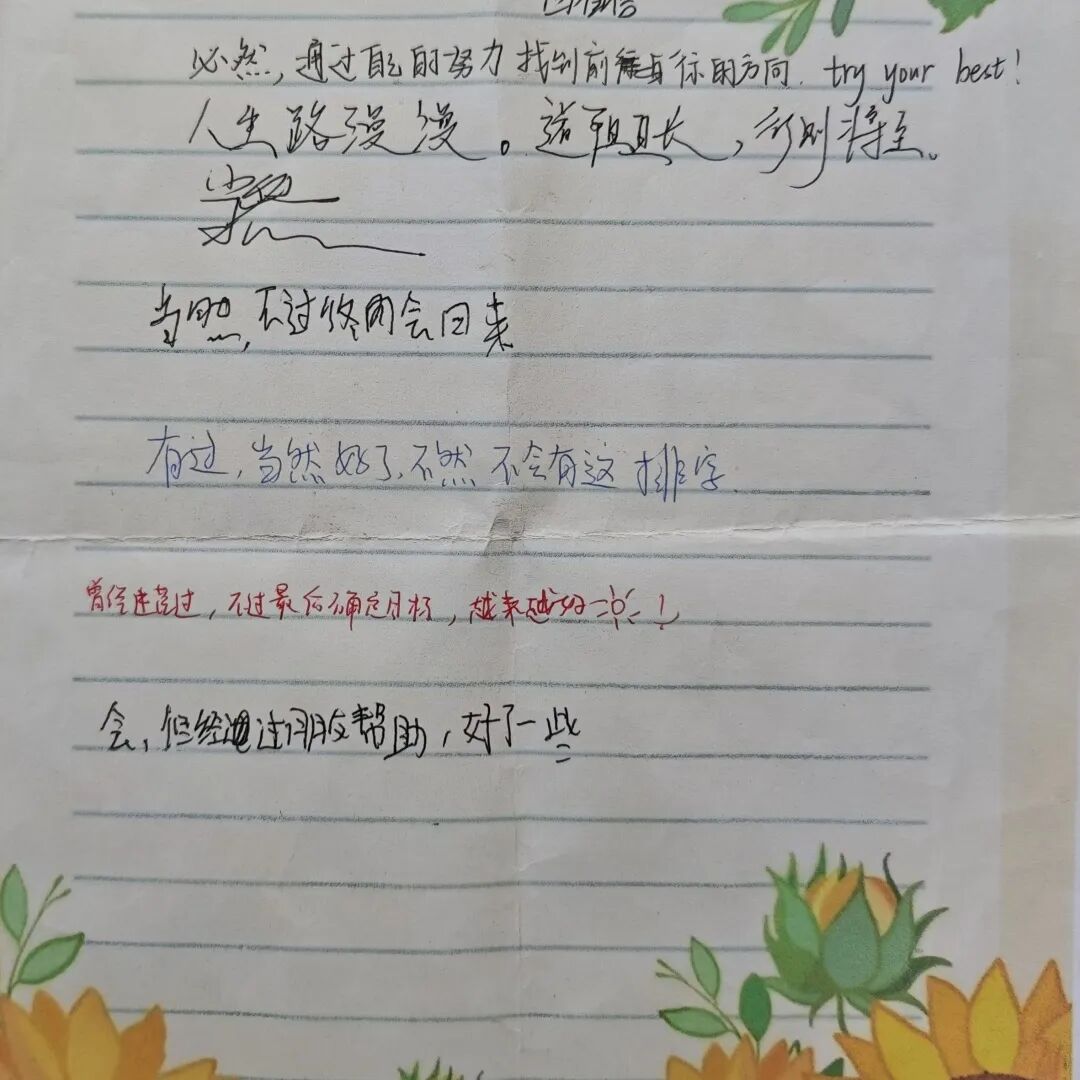 必然,通过自己的努力找到前行的方向. try your best!
人生路漫漫。道阻且长,行则将至。
当然,不过终究会回来
有过,当然好了,不然不会有这排字.
曾经迷茫过,不过最后确定目标,越来越好!
会,但经过朋友帮助,好了一些